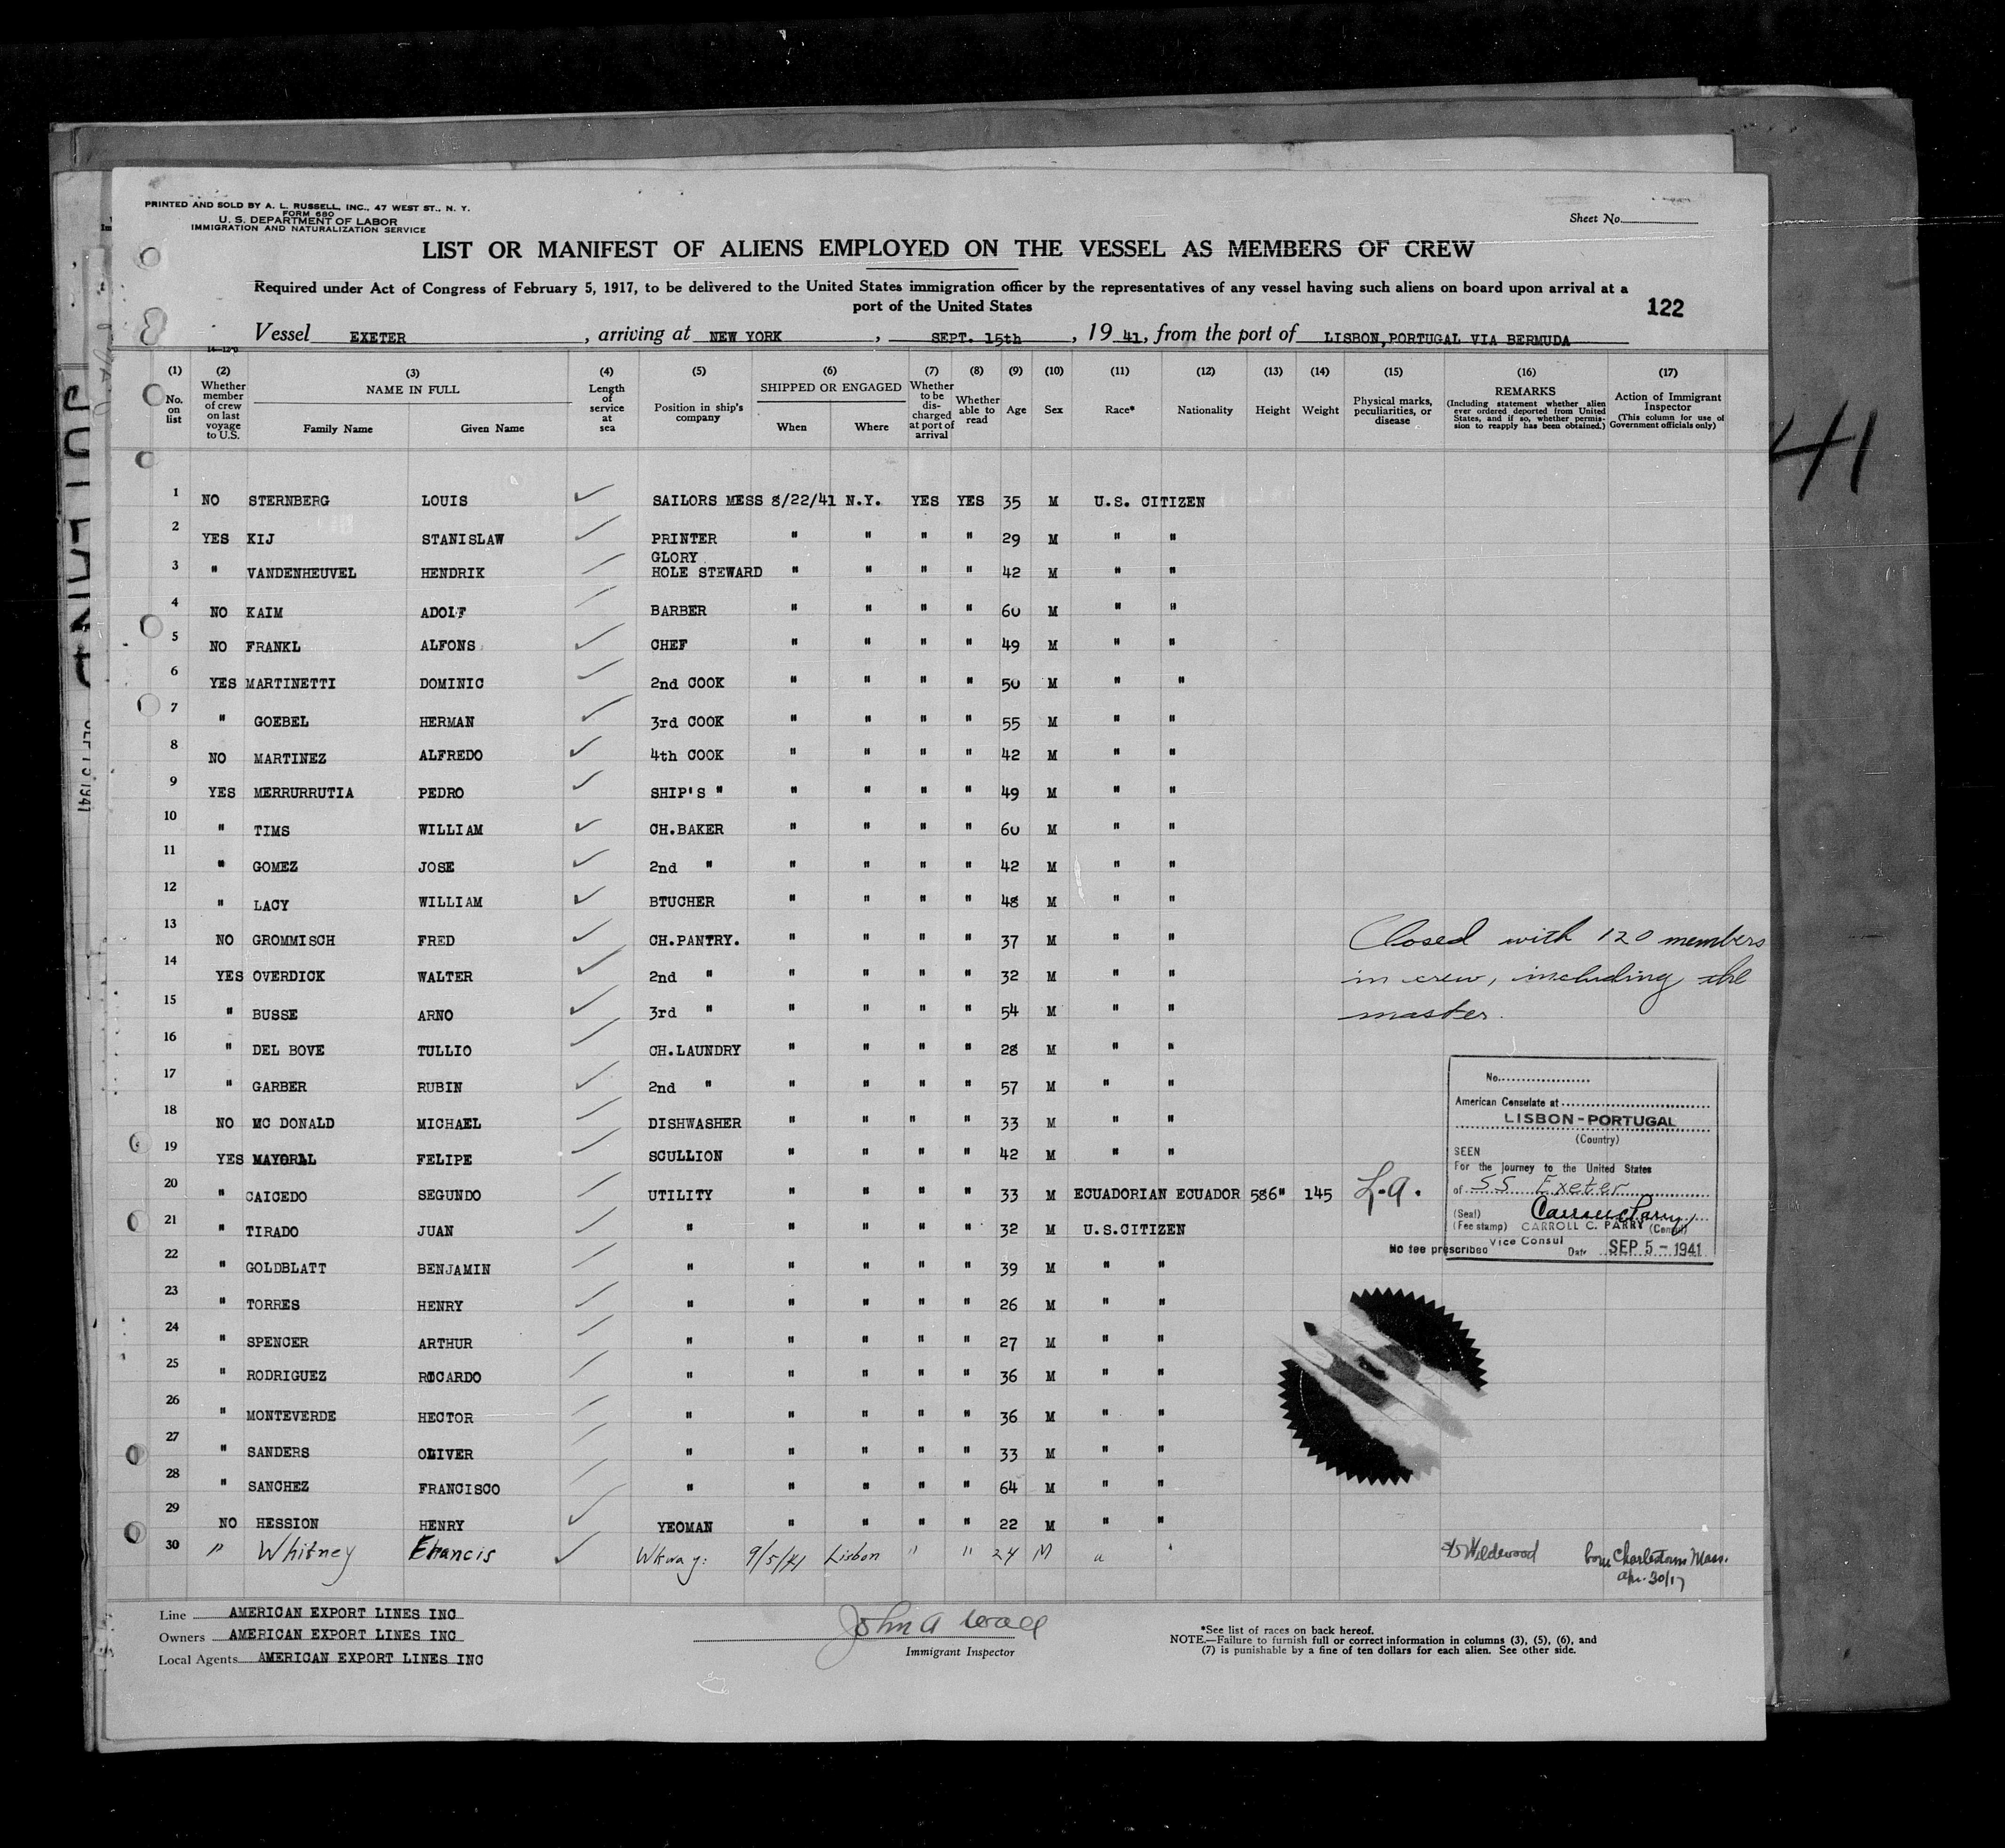 PRINTED AND SOLD BY A. L. RUSSELL, INC., 47 WEST ST., N. Y.
FORM 680
U. S. DEPARTMENT OF LABOR
IMMIGRATION AND NATURALIZATION SERVICE
Sheet No.
LIST OR MANIFEST OF ALIENS EMPLOYED ON THE VESSEL AS MEMBERS OF CREW
Required under Act of Congress of February 5, 1917, to be delivered to the United States immigration officer by the representatives of any vessel having such aliens on board upon arrival at a
port of the United States
122
Vessel EXETER, arriving at NEW YORK, SEPT. 15th, 19 41, from the port of LISBON, PORTUGAL VIA BERMUDA
(1) No. on list
(2) Whether member of crew on last voyage to U.S.
(3) NAME IN FULL Family Name Given Name
(4) Length of service at sea
(5) Position in ship's company
(6) SHIPPED OR ENGAGED When Where
(7) Whether to be discharged at port of arrival
(8) Whether able to read
(9) Age
(10) Sex
(11) Race*
(12) Nationality
(13) Height
(14) Weight
(15) Physical marks, peculiarities, or disease
(16) REMARKS (Including statement whether alien ever ordered deported from United States, and if so, whether permission to reapply has been obtained.)
(17) Action of Immigrant Inspector (This column for use of Government officials only)
41
1 NO STERNBERG LOUIS SAILORS MESS 8/22/41 N.Y. YES YES 35 M U.S. CITIZEN
2 YES KIJ STANISLAW PRINTER " " " " 29 M " "
3 " VANDENHEUVEL HENDRIK GLORY HOLE STEWARD " " " " 42 M " "
4 NO KAIM ADOLF BARBER " " " " 60 M " "
5 NO FRANKL ALFONS CHEF " " " " 49 M " "
6 YES MARTINETTI DOMINIC 2nd COOK " " " " 50 M " "
7 " GOEBEL HERMAN 3rd COOK " " " " 55 M " "
8 NO MARTINEZ ALFREDO 4th COOK " " " " 42 M " "
9 YES MERRURRUTIA PEDRO SHIP'S " " " " " 49 M " "
10 " TIMS WILLIAM CH.BAKER " " " " 60 M " "
11 " GOMEZ JOSE 2nd " " " " " 42 M " "
12 " LACY WILLIAM BTUCHER " " " " 48 M " "
13 NO GROMMISCH FRED CH.PANTRY. " " " " 37 M " "
14 YES OVERDICK WALTER 2nd " " " " " 32 M " "
15 " BUSSE ARNO 3rd " " " " " 54 M " "
16 " DEL BOVE TULLIO CH.LAUNDRY " " " " 28 M " "
17 " GARBER RUBIN 2nd " " " " " 57 M " "
18 NO MC DONALD MICHAEL DISHWASHER " " " " 33 M " "
19 YES MAYORAL FELIPE SCULLION " " " " 42 M " "
20 " CAICEDO SEGUNDO UTILITY " " " " 33 M ECUADORIAN ECUADOR 586" 145
21 " TIRADO JUAN " " " " " 32 M U.S.CITIZEN
22 " GOLDBLATT BENJAMIN " " " " " 39 M " "
23 " TORRES HENRY " " " " " 26 M " "
24 " SPENCER ARTHUR " " " " " 27 M " "
25 " RODRIGUEZ RICARDO " " " " " 36 M " "
26 " MONTEVERDE HECTOR " " " " " 36 M " "
27 " SANDERS OLIVER " " " " " 33 M " "
28 " SANCHEZ FRANCISCO " " " " " 64 M " "
29 NO HESSION HENRY YEOMAN " " " " 22 M " "
30 " Whitney Francis Wkway: 9/5/41 Lisbon " " 24 M " " Wildewood born Charlestown Mass. Apr. 30/17
Closed with 120 members
in crew, including the
master.
No.
American Consulate at
LISBON-PORTUGAL
(Country)
SEEN
For the journey to the United States
of SS Exeter
(Seal) Carroll C Parry
(Fee stamp) CARROLL C. PARRY (Consul)
Vice Consul
No fee prescribed Date SEP 5 - 1941
Line AMERICAN EXPORT LINES INC
Owners AMERICAN EXPORT LINES INC
Local Agents AMERICAN EXPORT LINES INC
John A Wall
Immigrant Inspector
*See list of races on back hereof.
NOTE.—Failure to furnish full or correct information in columns (3), (5), (6), and
(7) is punishable by a fine of ten dollars for each alien. See other side.